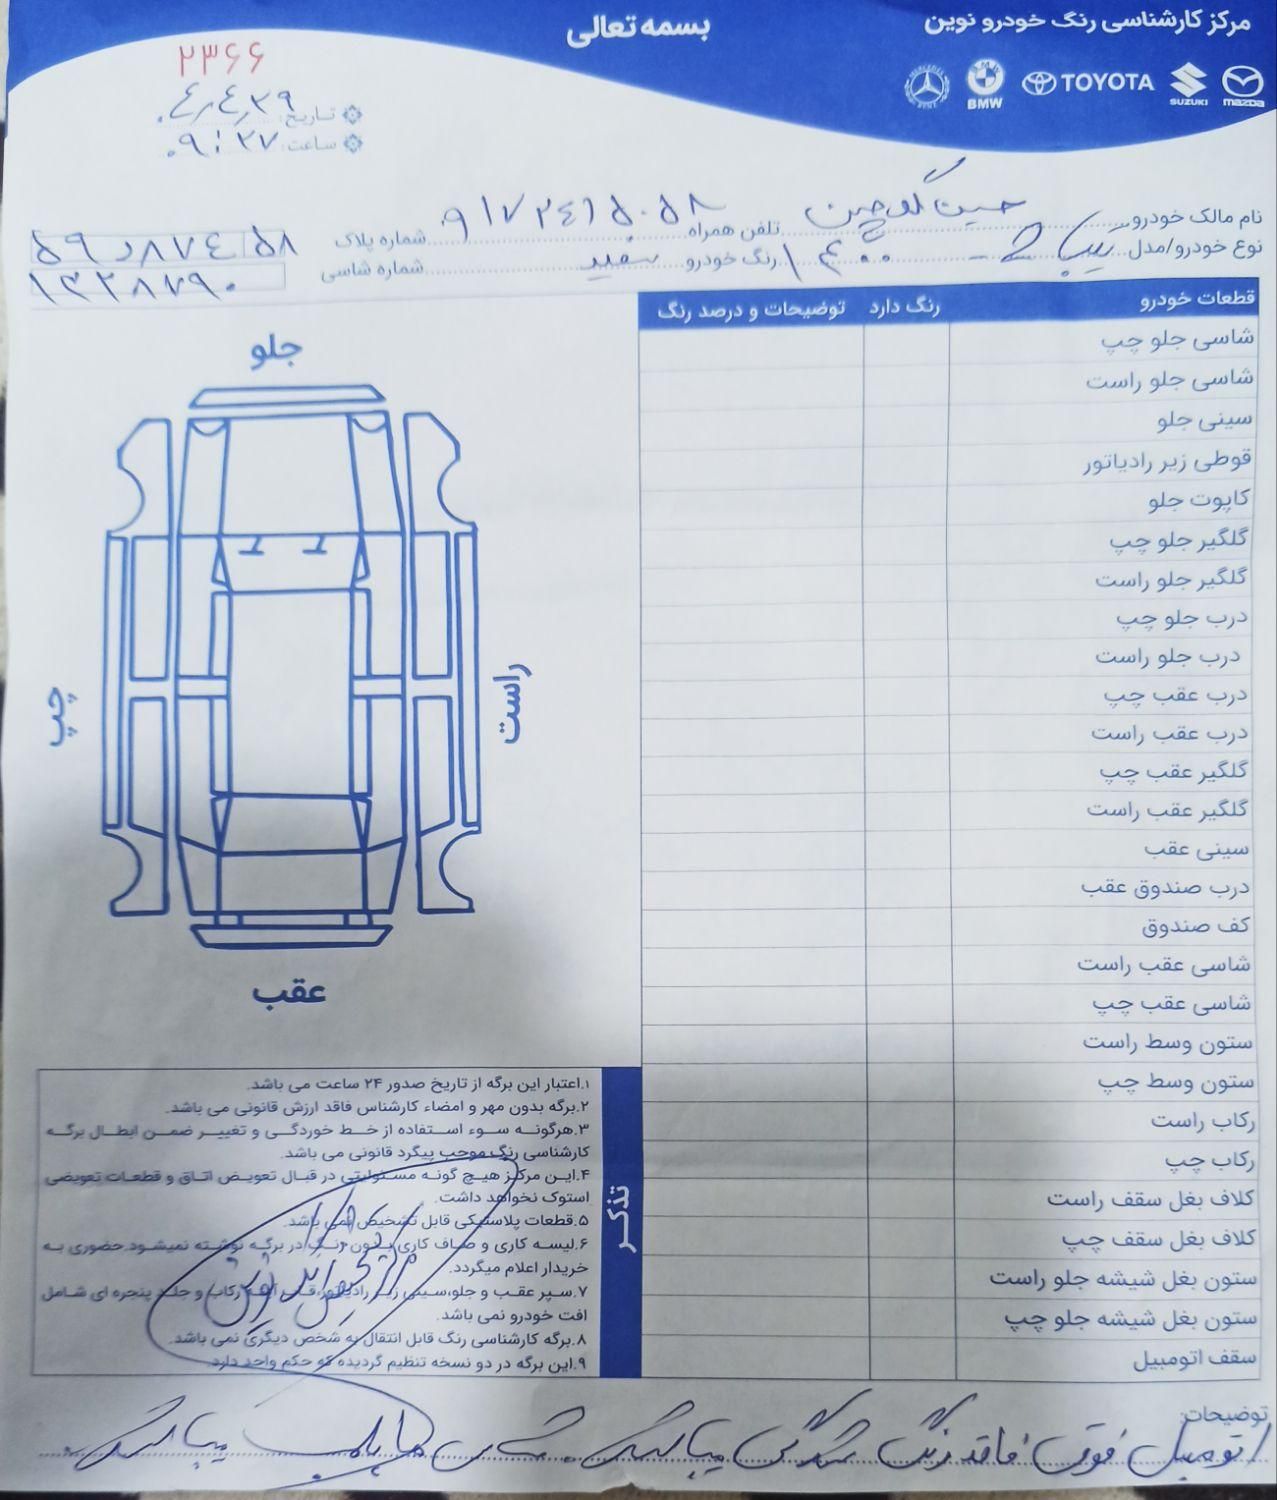 مرکز کارشناسی رنگ خودرو نوین
بسمه تعالی
TOYOTA
BMW
SUZUKI
mazda
۲۳۶۶
تاریخ: ۰۴٫۴٫۲۹
ساعت: ۰۹:۲۷
نام مالک خودرو: حسین گلوچین تلفن همراه ۰۹۱۷۲۴۱۵۰۵۸ شماره پلاک ۵۹د۸۷۴ ۵۸
نوع خودرو/مدل تیبا ۲ - ۱۴۰۰ رنگ خودرو سفید شماره شاسی ۱۳۲۸۷۹۰
قطعات خودرو رنگ دارد توضیحات و درصد رنگ
شاسی جلو چپ
شاسی جلو راست
سینی جلو
قوطی زیر رادیاتور
کاپوت جلو
گلگیر جلو چپ
گلگیر جلو راست
درب جلو چپ
درب جلو راست
درب عقب چپ
درب عقب راست
گلگیر عقب چپ
گلگیر عقب راست
سینی عقب
درب صندوق عقب
کف صندوق
شاسی عقب راست
شاسی عقب چپ
ستون وسط راست
ستون وسط چپ
رکاب راست
رکاب چپ
کلاف بغل سقف راست
کلاف بغل سقف چپ
ستون بغل شیشه جلو راست
ستون بغل شیشه جلو چپ
سقف اتومبیل
جلو
راست
چپ
عقب
تذکر
۱.اعتبار این برگه از تاریخ صدور ۲۴ ساعت می باشد.
۲.برگه بدون مهر و امضاء کارشناس فاقد ارزش قانونی می باشد.
۳.هرگونه سوء استفاده از خط خوردگی و تغییر ضمن ابطال برگه
کارشناسی رنگ موجب پیگرد قانونی می باشد.
۴.این مرکز هیچ گونه مسئولیتی در قبال تعویض اتاق و قطعات تعویضی
استوک نخواهد داشت.
۵.قطعات پلاستیکی قابل تشخیص نمی باشد.
۶.لیسه کاری و صاف کاری بدون رنگ در برگه نوشته نمیشود.حضوری به
خریدار اعلام میگردد.
۷.سپر عقب و جلو،سینی زیر رادیاتور،قاب آینه رکاب و جلد پنجره ای شامل
افت خودرو نمی باشد.
۸.برگه کارشناسی رنگ قابل انتقال به شخص دیگری نمی باشد.
۹.این برگه در دو نسخه تنظیم گردیده که حکم واحد دارد.
توضیحات:
اتومبیل فوق فاقد رنگ شدگی میباشد. شاسی ها پلمپ میباشد.